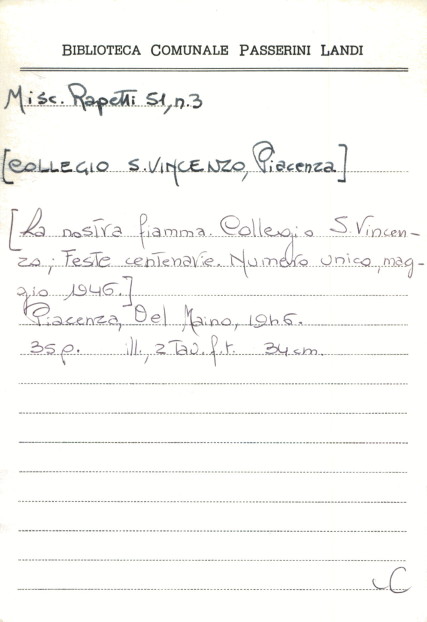 BIBLIOTECA COMUNALE PASSERINI LANDI
Misc. Rapetti 51, n.3
[COLLEGIO S. VINCENZO, Piacenza]
[La nostra fiamma. Collegio S. Vincen-
zo; Feste centenarie. Numero unico, mag-
gio 1946.]
Piacenza, Del Maino, 1946.
35 p. ill., 2 Tav. f.t. 34 cm.